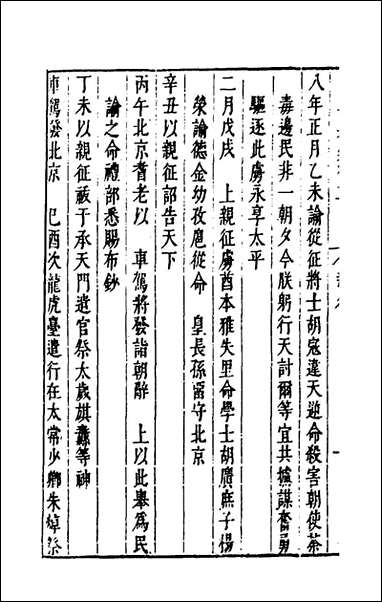 八年正月乙未諭從征將士胡寇違天逆命殺害朝使荼
毒邊民非一朝夕今朕躬行天討爾等宜共攄謀奮勇
驅逐此虜永享太平
二月戊戌 上親征虜酋本雅失里命學士胡廣庶子楊
榮諭德金幼孜扈從命 皇長孫留守北京
辛丑以親征詔告天下
丙午北京耆老以 車駕將發詣朝辭 上以此舉為民
諭之命禮部悉賜布鈔
丁未以親征祓于承天門遣官祭太歲旗纛等神
車駕發北京 己酉次龍虎臺遣行在太常少卿朱焯祭